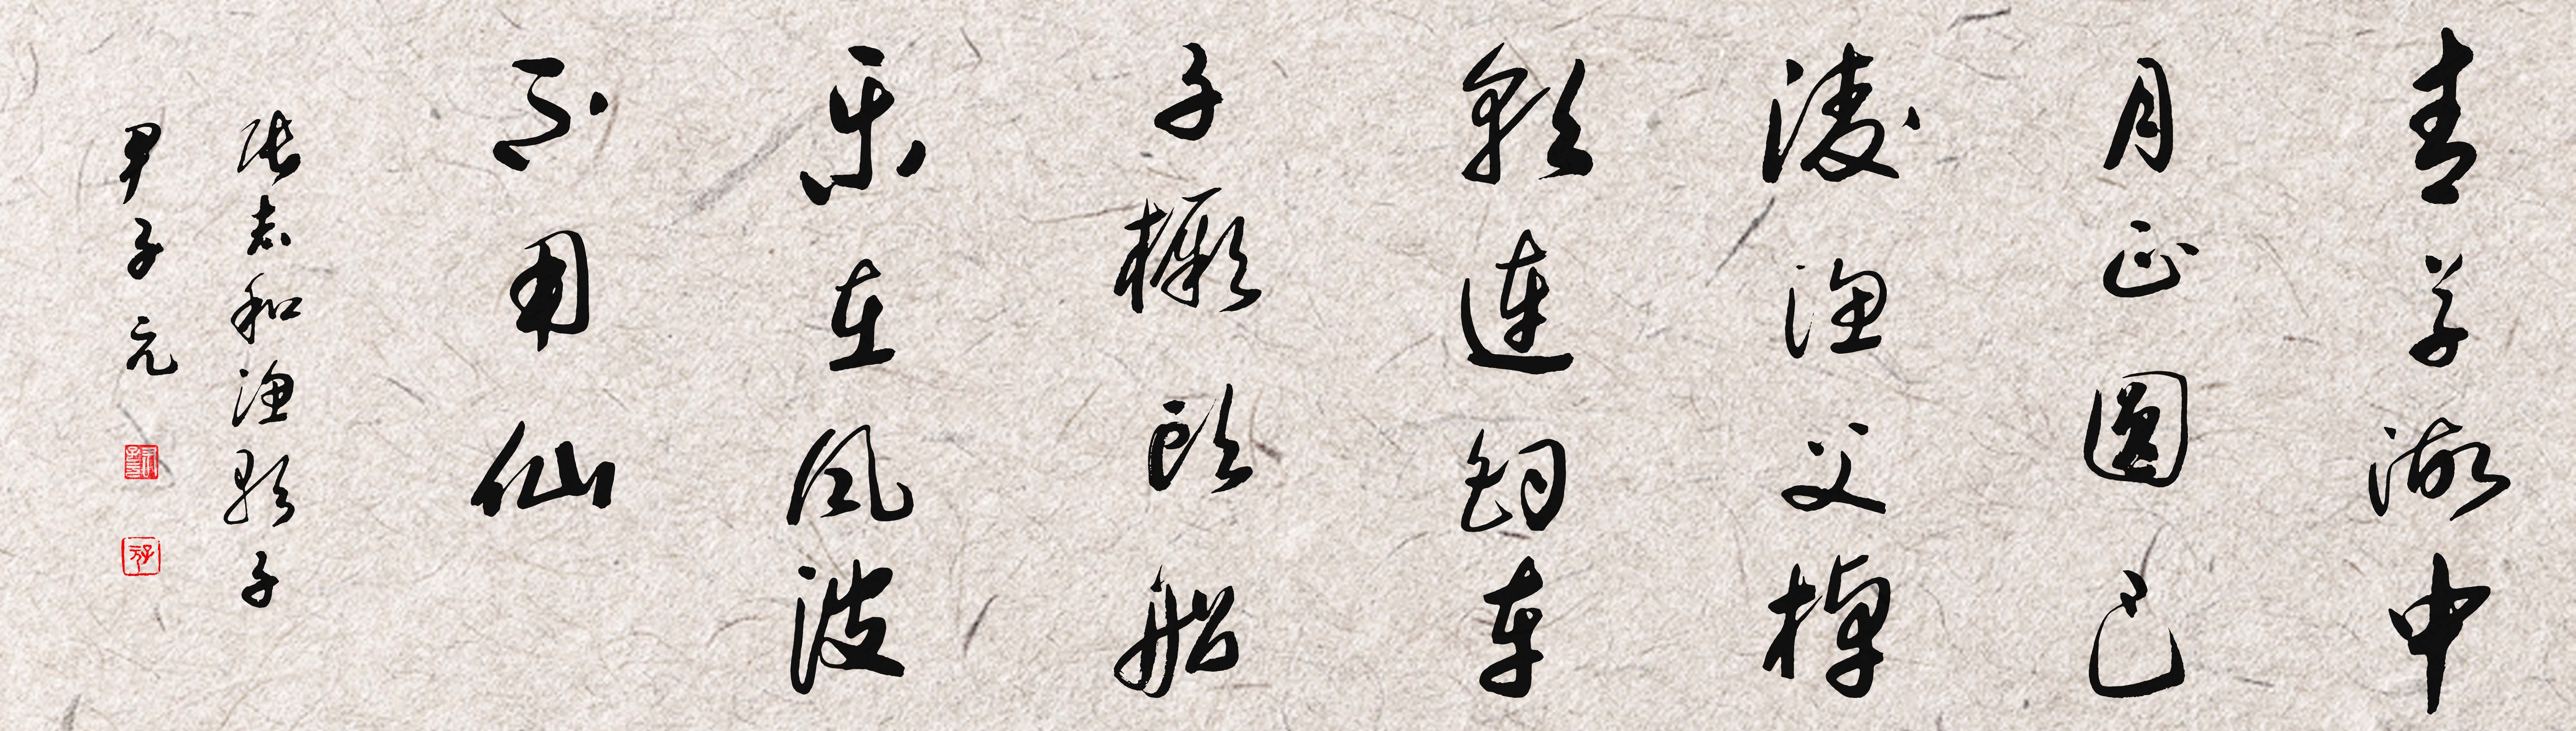 青草湖中
月正圆巴
陵渔父棹
歌连钓车
子橛头船
乐在风波
不用仙
张志和渔歌子
尹子元